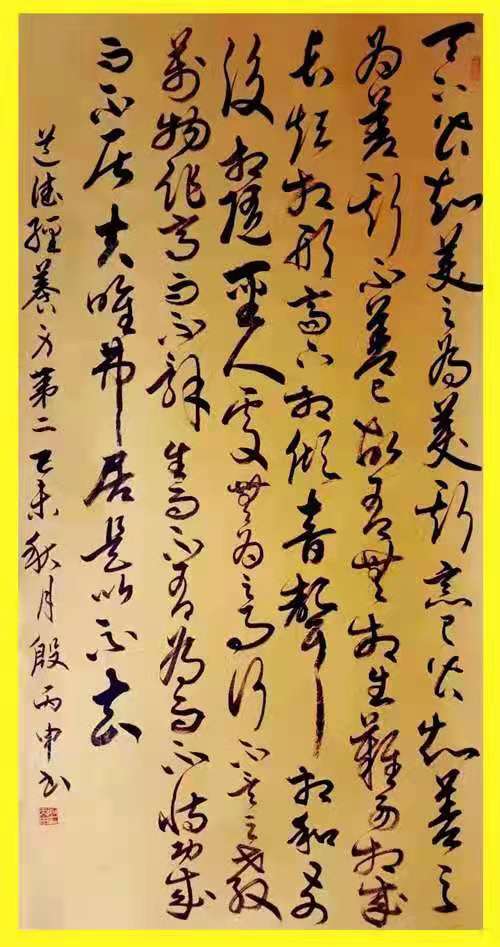 天下皆知美之為美斯惡已皆知善之
為善斯不善已故有無相生難易相成
長短相形高下相傾音聲相和前
後相隨聖人處無為之事行不言之教
萬物作焉而不辭生而不有為而不恃功成
而不居夫唯弗居是以不去
道德經養身第二乙未秋月殷丙申書